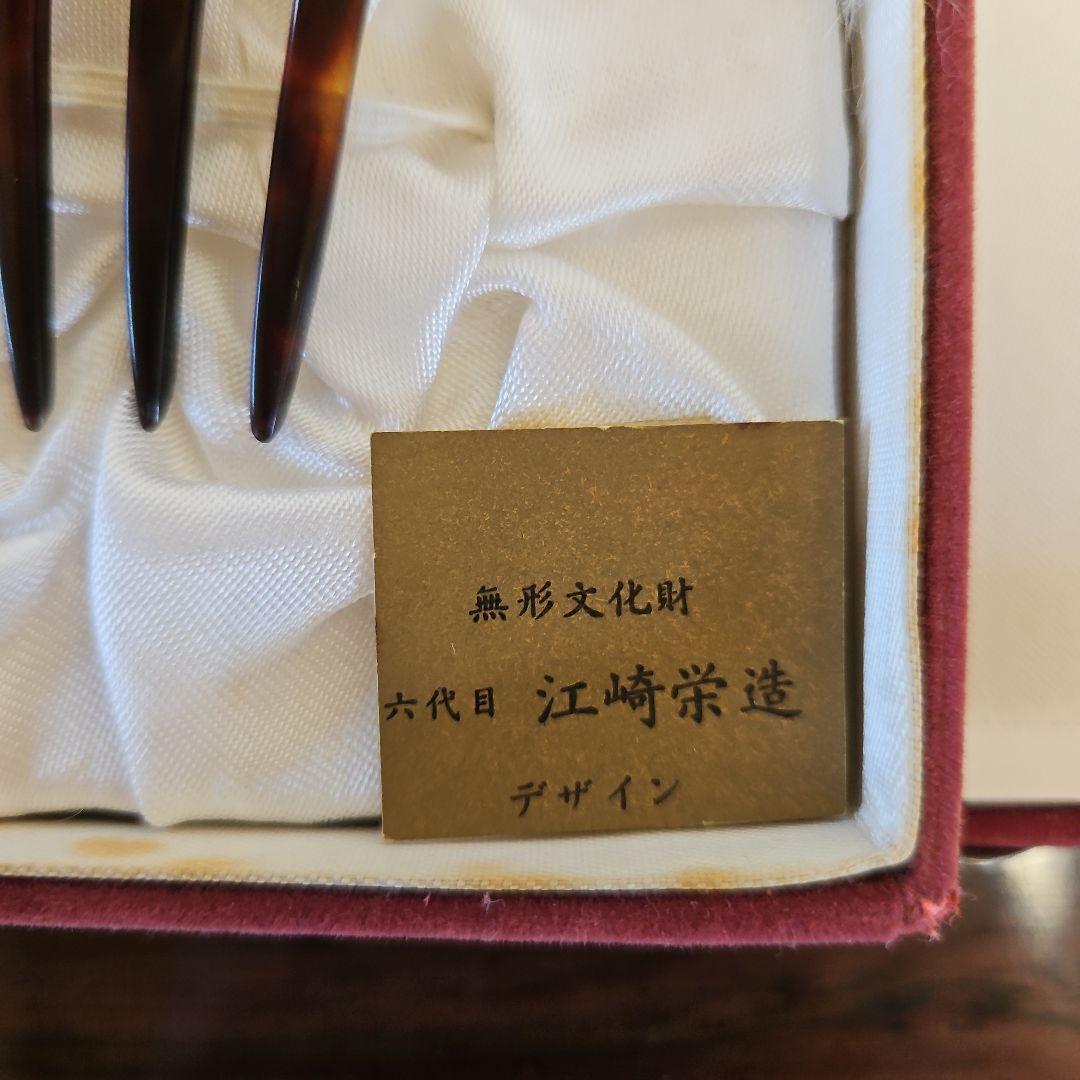 無形文化財
六代目 江崎栄造
デザイン